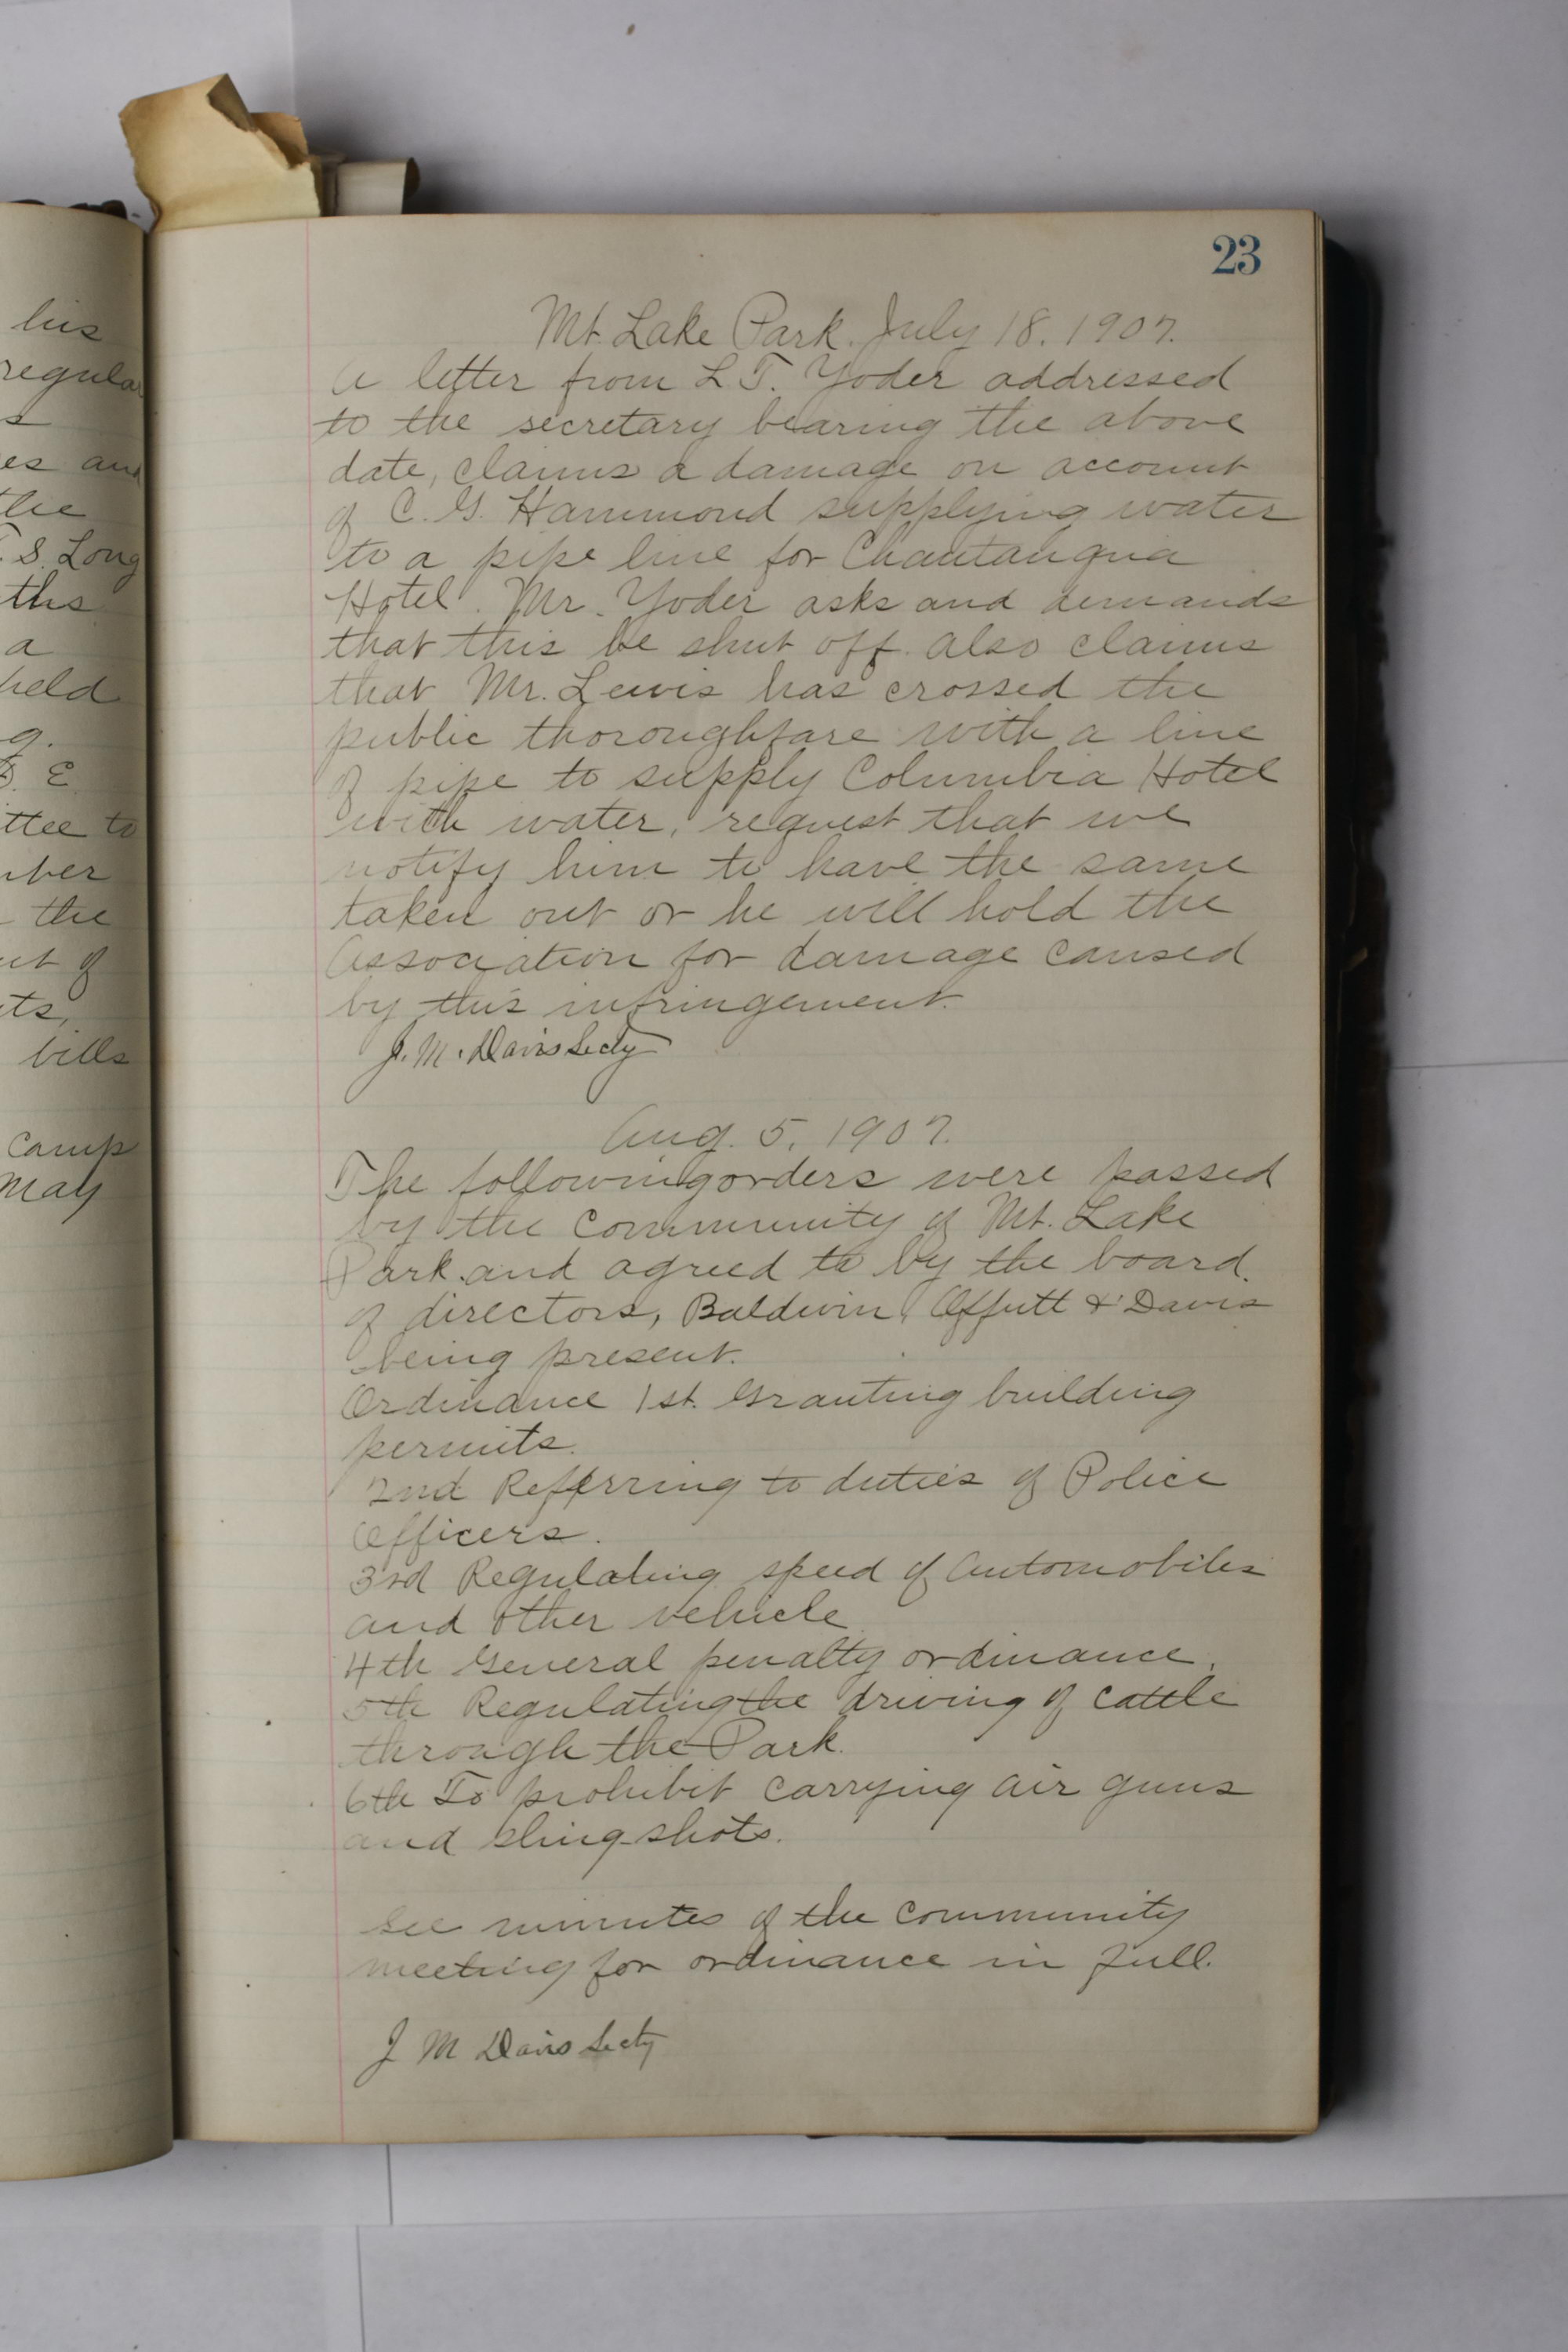 his
regular
s
es and
the
T. S. Long
ths
a
held
g.
E
ttee to
mber
the
ut of
ts,
bills
Camp
May
23
Mt. Lake Park. July 18. 1907.
A letter from L T. Yoder addressed
to the secretary bearing the above
date, claims a damage on account
of C. G. Hammond supplying water
to a pipe line for Chautauqua
Hotel. Mr. Yoder asks and demands
that this be shut off. also claims
that Mr. Lewis has crossed the
public thoroughfare with a line
of pipe to supply Columbia Hotel
with water, request that we
notify him to have the same
taken out or he will hold the
Association for damage caused
by this infringement.
J. M. Davis Secty
Aug. 5, 1907.
The following orders were passed
by the community of Mt. Lake
Park and agreed to by the board
of directors, Baldwin, Offutt & Davis
being present.
Ordinance 1st. Granting building
permits.
2nd Referring to duties of Police
Officers.
3rd Regulating speed of Automobiles
and other vehicle
4th General penalty ordinance.
5th Regulating the driving of cattle
through the Park.
6th To prohibit carrying air guns
and sling-shots.
See minutes of the community
meeting for ordinance in full.
J M Davis Secty